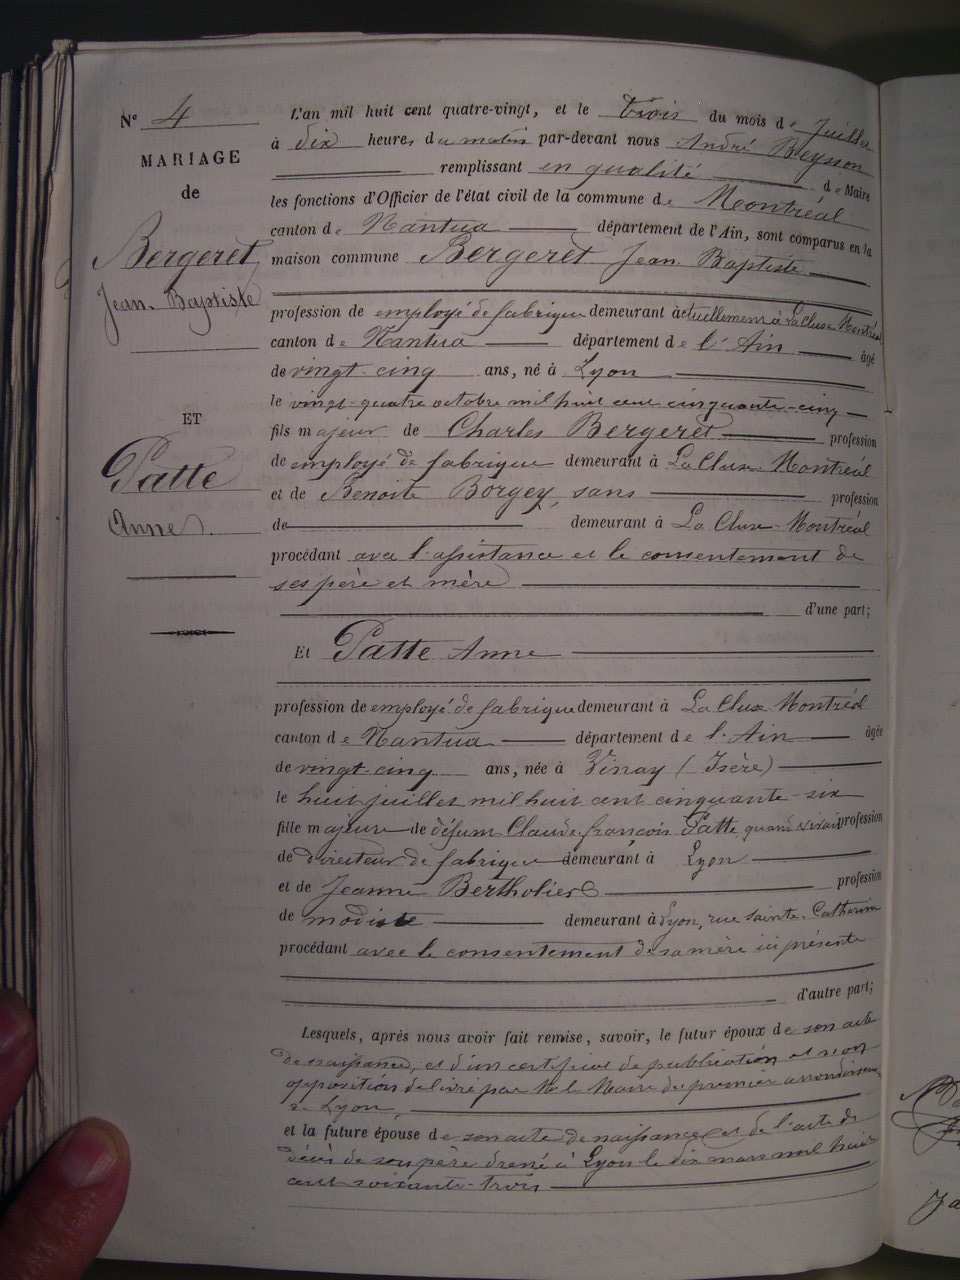 N° 4
MARIAGE
de
Bergeret
Jean-Baptiste
ET
Patte
Anne
L'an mil huit cent quatre-vingt, et le trois du mois de Juillet
à dix heures du matin par-devant nous André Beysson
remplissant en qualité de Maire
les fonctions d'Officier de l'état civil de la commune de Montréal
canton de Nantua département de l'Ain, sont comparus en la
maison commune Bergeret Jean Baptiste
profession de employé de fabrique demeurant actuellement à La Cluse Montréal
canton de Nantua département de l'Ain âgé
de vingt-cinq ans, né à Lyon
le vingt-quatre octobre mil huit cent cinquante-cinq
fils majeur de Charles Bergeret profession
de employé de fabrique demeurant à La Cluse Montréal
et de Benoite Borgey, sans profession
de demeurant à La Cluse-Montréal
procédant avec l'assistance et le consentement de
ses père et mère
d'une part;
Et Patte Anne
profession de employé de fabrique demeurant à La Cluse Montréal
canton de Nantua département de l'Ain âgée
de vingt-cinq ans, née à Vinay (Isère)
le huit juillet mil huit cent cinquante-six
fille majeure de défunt Claude françois Patte quand vivait profession
de directeur de fabrique demeurant à Lyon
et de Jeanne Bertholier profession
de modiste demeurant à Lyon, rue Sainte-Catherine
procédant avec le consentement de sa mère ici présente
d'autre part;
Lesquels, après nous avoir fait remise, savoir, le futur époux de son acte
de naissance, et d'un certificat de publication et non
opposition délivré par M. le Maire du premier arrondissement
de Lyon,
et la future épouse de son acte de naissance et de l'acte de
décès de son père dressé à Lyon le dix mars mil huit
cent soixante-trois